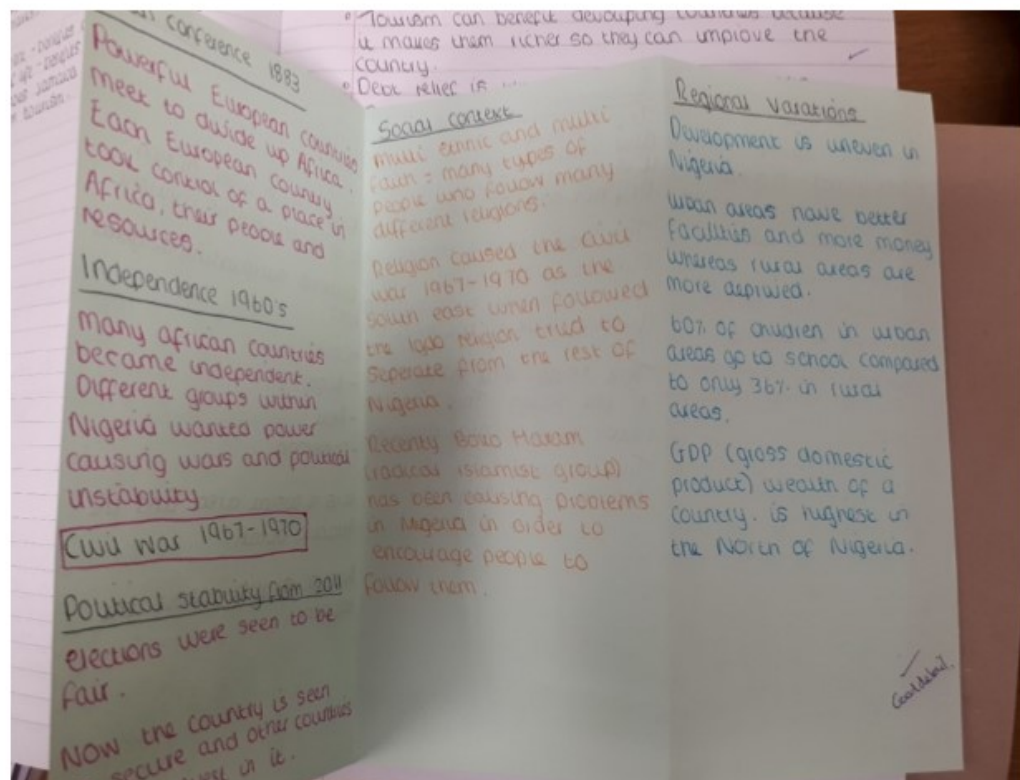 Tourism can benefit devouping countries because
it makes them richer so they can improve the
country.
Debt relief is
Conference 1883
Powerful European countries
meet to divide up Africa.
Each European country
took control of a place in
Africa, their people and
resources.
Independence 1960's
Many african countries
became independent.
Different groups within
Nigeria wanted power
causing wars and political
instability
Civil War 1967-1970
Political stability from 2011
elections were seen to be
fair.
NOW the country is seen
secure and other countries
in it.
Social context
Multi ethnic and multi
faith = many types of
people who follow many
different religions.
Religion caused the Civil
war 1967-1970 as the
south east when followed
the Igbo religion tried to
seperate from the rest of
Nigeria.
Recently Boko Haram
(radical islamist group)
has been causing problems
in Nigeria in order to
encourage people to
follow them.
Regional Varations
Development is uneven in
Nigeria.
urban areas have better
facilities and more money
whereas rural areas are
more deprived.
60% of children in urban
areas go to school compared
to only 36% in rural
areas.
GDP (gross domestic
product) wealth of a
country. is highest in
the North of Nigeria.
Good detail.